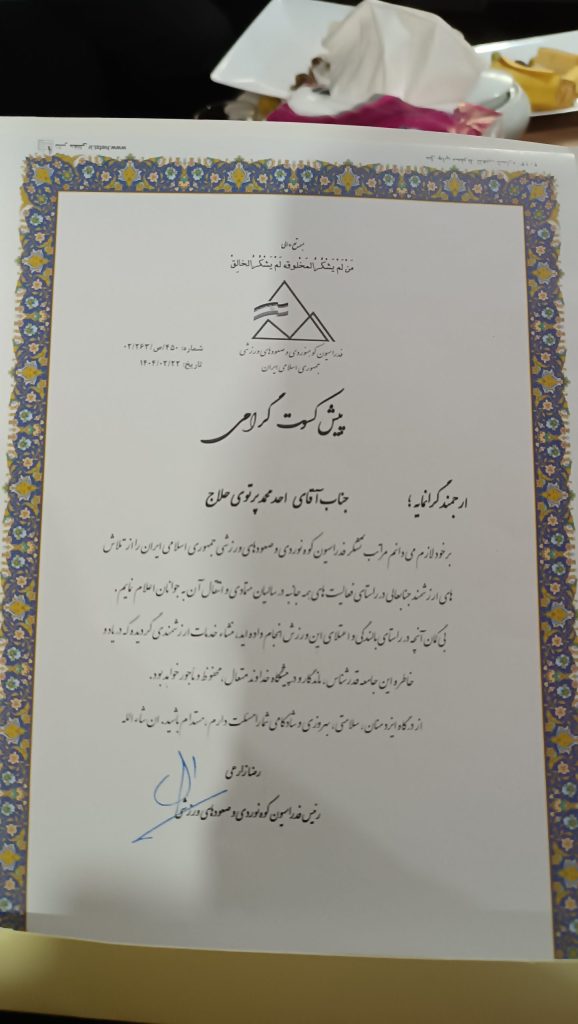 بسمه تعالی
مَنْ لَمْ یَشْکُرُ المَخْلُوق لَمْ یَشْکُرُ الخالِقْ
فدراسیون کوهنوردی و صعودهای ورزشی
جمهوری اسلامی ایران
شماره: ۴۵۰/ص/۰۲/۲۶۳
تاریخ: ۱۴۰۴/۰۲/۲۲
پیش کسوت گرامی
ارجمند گرانمایه؛ جناب آقای احد محمد پرتوی حلاج
برخود لازم می دانم مراتب تشکر فدراسیون کوه نوردی و صعودهای ورزشی جمهوری اسلامی ایران را از تلاش
های ارزشمند جنابعالی در راستای فعالیت های همه جانبه در سالیان متمادی و انتقال آن به جوانان اعلام نمایم.
بی گمان آنچه در راستای بالندگی و اعتلای این ورزش انجام داده اید، منشاء خدمات ارزشمندی گردیده که در یاد و
خاطر و این جامعه قدرشناس، ماندگار و در پیشگاه خداوند متعال، محفوظ و ماجور خواهد بود.
از درگاه ایزد منان، سلامتی، بهروزی و شادکامی شما را مسئلت دارم. مستدام باشید. ان شاء الله
رضا زارعی
رئیس فدراسیون کوه نوردی و صعودهای ورزشی